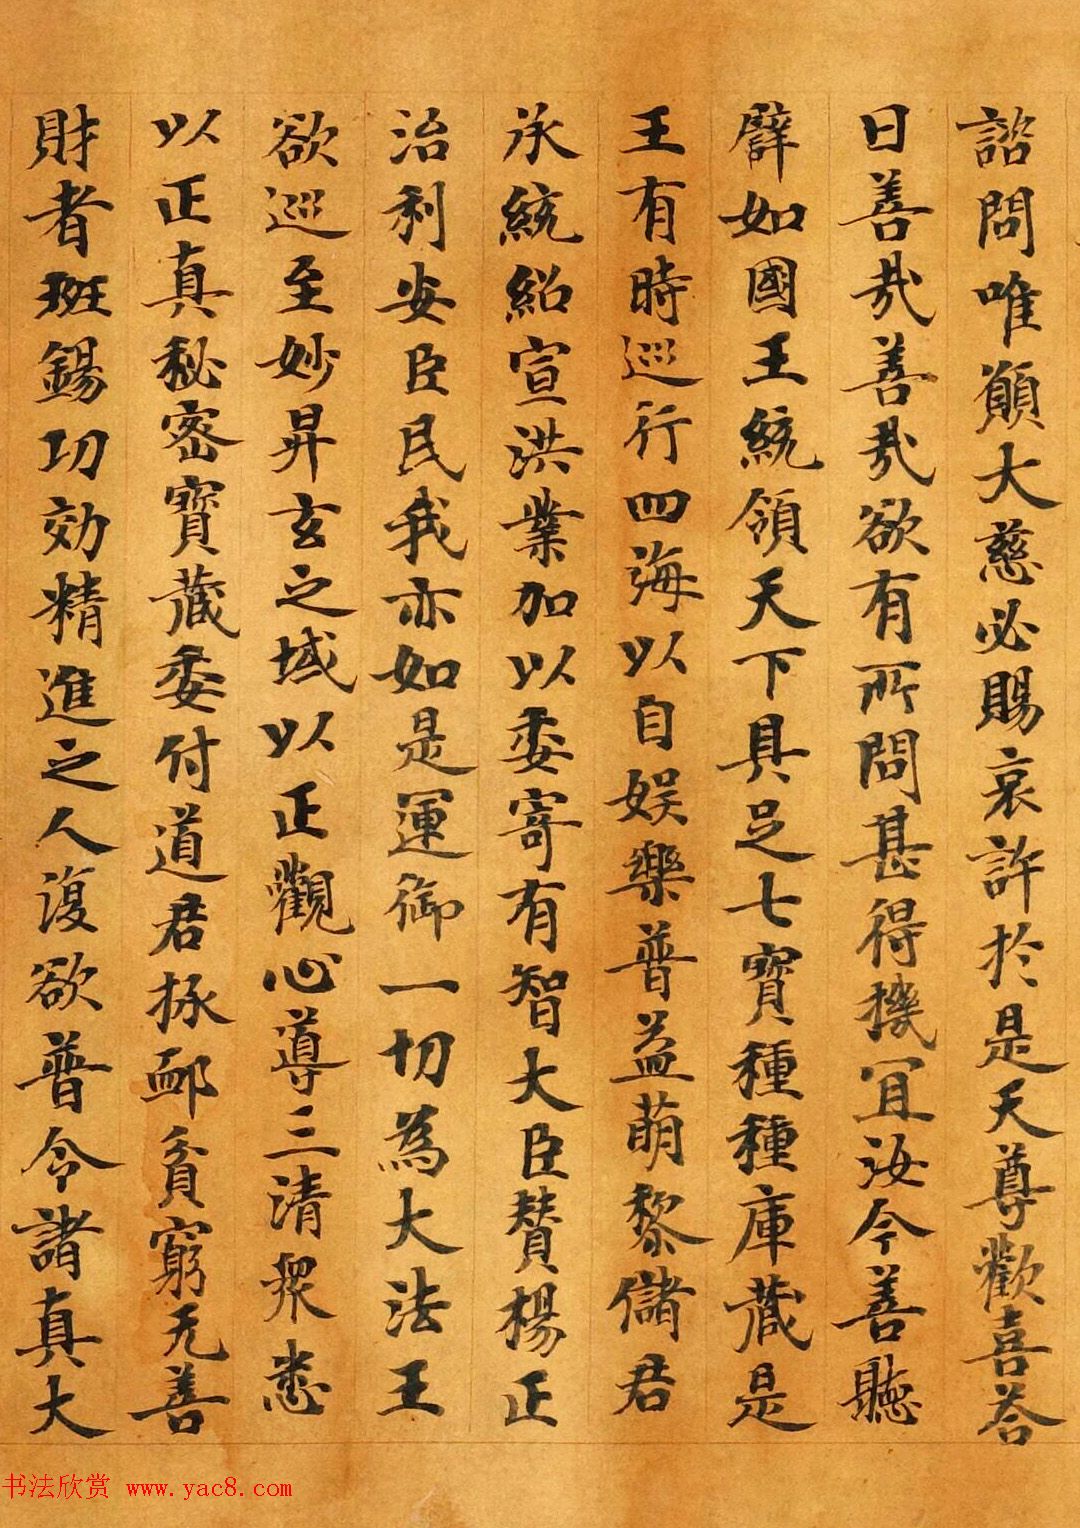 諮問唯願大慈必賜哀許於是天尊歡喜荅
曰善哉善哉欲有所問甚得機冝汝今善聽
譬如國王王統領天下具足七寶種種庫藏是
王有時巡行四海以自娱樂普益萌黎儲君
承統紹宣洪業加以委寄有智大臣賛楊正
治利安臣民我亦如是運御一切為大法王
欲巡至妙昇玄之域以正觀心導三清衆悉
以正真秘密寶藏委付道君拯卹貧窮无善
財者班錫功効精進之人復欲普令諸真大
书法欣赏 www.yac8.com